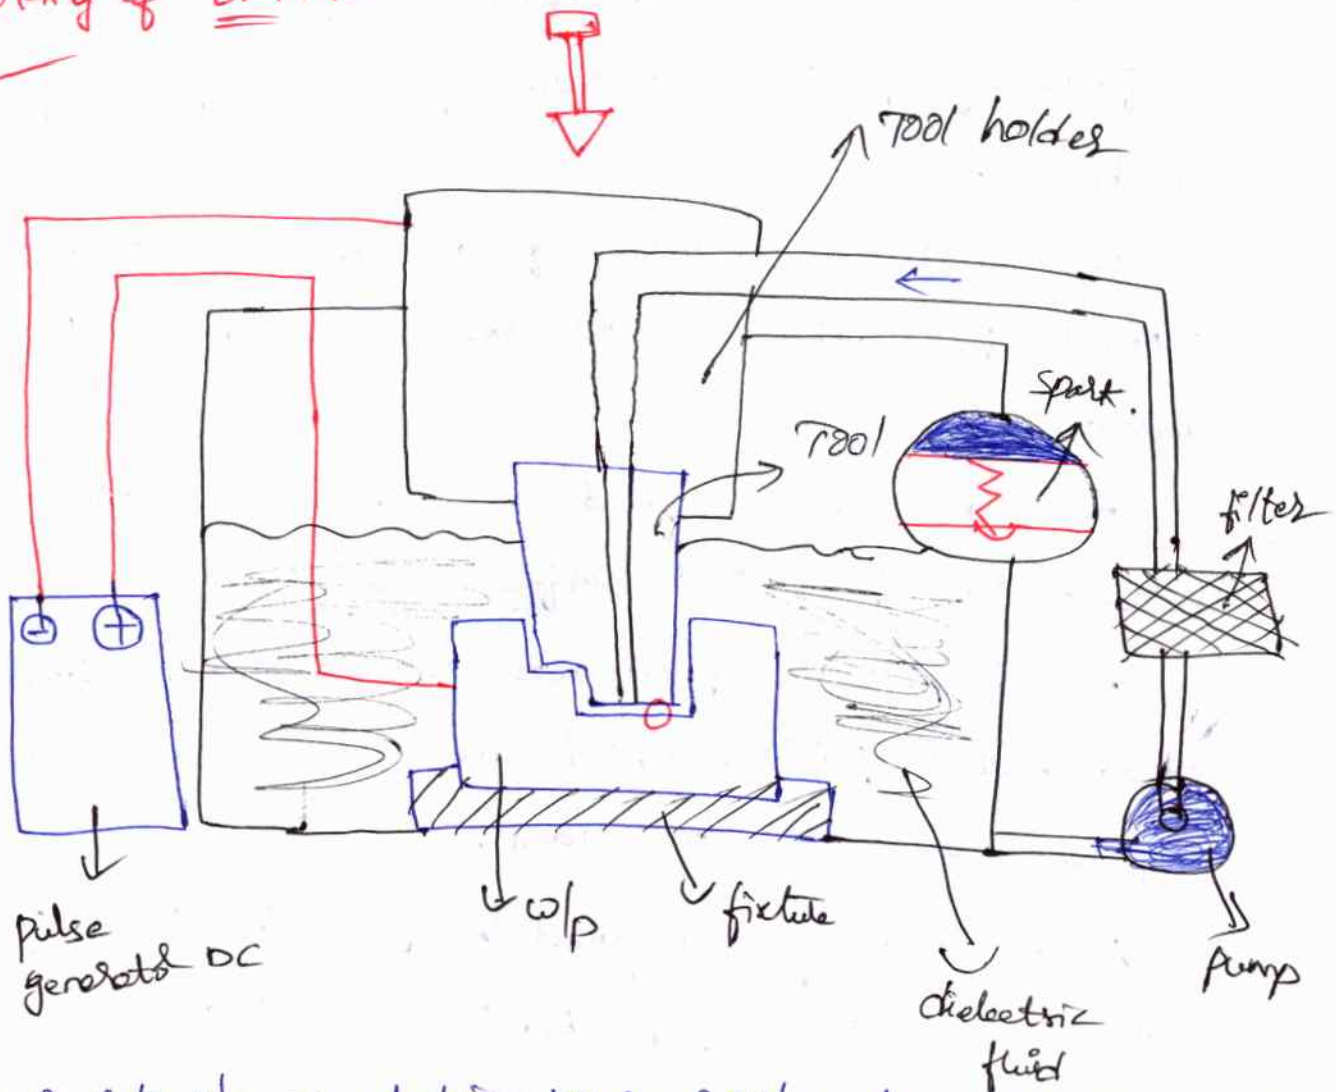 of
Tool holder
Tool
Spark.
filter
- +
pulse
generator DC
w/p
fixture
dielectric
fluid
pump